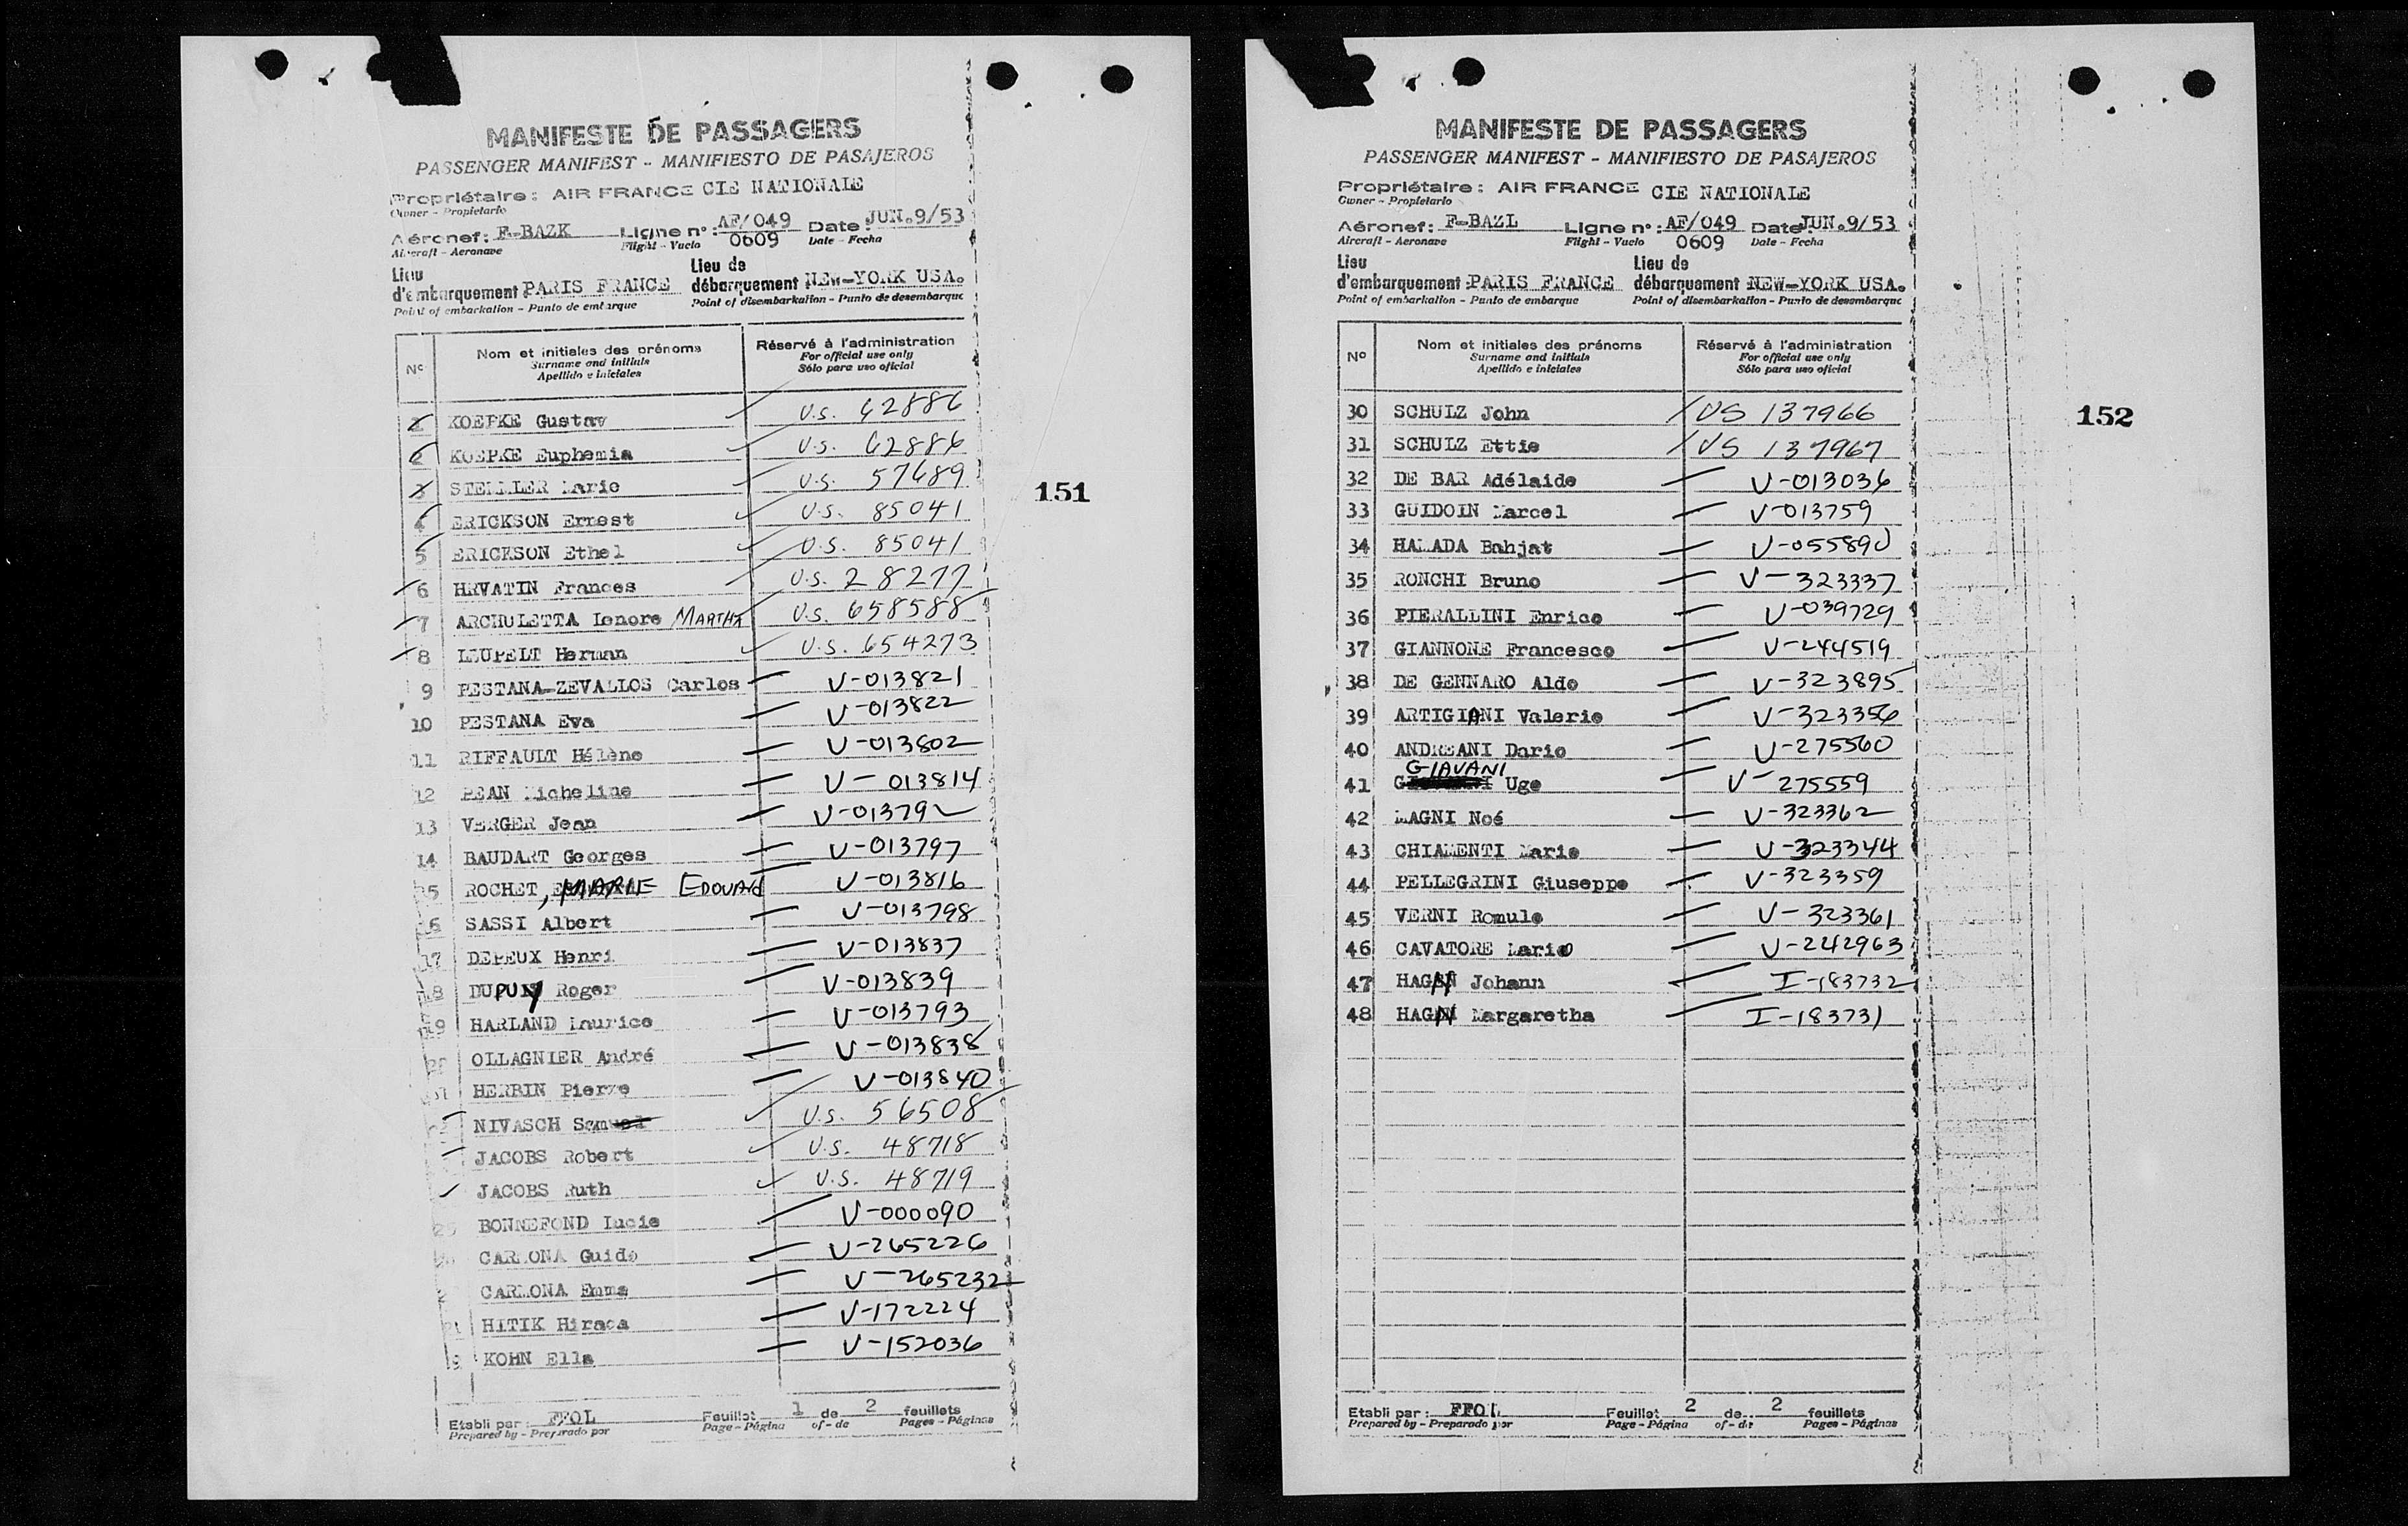 MANIFESTE DE PASSAGERS
PASSENGER MANIFEST - MANIFIESTO DE PASAJEROS
Propriétaire : AIR FRANCE CIE NATIONALE
Owner - Propietario
Aéronef : F-BAZK Ligne n° : AF/049 0609 Date : JUN.9/53
Aircraft - Aeronave Flight - Vuelo Date - Fecha
Lieu d'embarquement PARIS FRANCE Lieu de débarquement NEW-YORK USA.
Point of embarkation - Punto de embarque Point of disembarkation - Punto de desembarque
N° Nom et initiales des prénoms Réservé à l'administration
Surname and initials For official use only
Apellido e iniciales Sólo para uso oficial
1 KOEPKE Gustav U.S. 62886
2 KOEPKE Euphemia U.S. 62886
3 Marie U.S. 57689
4 ERICKSON Ernest U.S. 85041
5 ERICKSON Ethel U.S. 85041
6 HRVATIN Frances U.S. 28277
7 ARCHULETTA Lenore MARTHA U.S. 658588
8 LEUPELT Herman U.S. 654273
9 PESTANA-ZEVALLOS Carlos V-013821
10 PESTANA Eva V-013822
11 RIFFAULT Hélène V-013802
12 PEAN Micheline V-013814
13 VERGER Jean V-013792
14 BAUDART Georges V-013797
15 ROCHET, MARIE EDOUARD V-013816
16 SASSI Albert V-013798
17 DEPEUX Henri V-013837
18 DUPUY Roger V-013839
19 HARLAND Maurice V-013793
OLLAGNIER André V-013838
HERBIN Pierre V-013840
NIVASCH Samuel U.S. 56508
JACOBS Robert U.S. 48718
JACOBS Ruth U.S. 48719
BONNEFOND Lucie V-000090
CARMONA Guido V-265226
CARMONA Emma V-265232
HITIK Hiraca V-172224
KOHN Ella V-152036
Etabli par : FFOL Feuillet 1 de 2 feuillets
Prepared by - Preparado por Page - Página of - de Pages - Páginas
151
MANIFESTE DE PASSAGERS
PASSENGER MANIFEST - MANIFIESTO DE PASAJEROS
Propriétaire : AIR FRANCE CIE NATIONALE
Owner - Propietario
Aéronef : F-BAZL Ligne n° : AF/049 0609 Date : JUN.9/53
Aircraft - Aeronave Flight - Vuelo Date - Fecha
Lieu d'embarquement : PARIS FRANCE Lieu de débarquement NEW-YORK USA.
Point of embarkation - Punto de embarque Point of disembarkation - Punto de desembarque
N° Nom et initiales des prénoms Réservé à l'administration
Surname and initials For official use only
Apellido e iniciales Sólo para uso oficial
30 SCHULZ John US 137966
31 SCHULZ Ettie US 137967
32 DE BAR Adélaide V-013036
33 GUIDOIN Marcel V-013759
34 HAMADA Bahjat V-055890
35 RONCHI Bruno V-323337
36 PIERALLINI Enrico V-039729
37 GIANNONE Francesco V-244519
38 DE GENNARO Aldo V-323895
39 ARTIGIANI Valerio V-323356
40 ANDREANI Dario V-275560
41 GIAVANI Ugo V-275559
42 MAGNI Noé V-323362
43 CHIAMENTI Mario V-323344
44 PELLEGRINI Giuseppe V-323359
45 VERNI Romulo V-323361
46 CAVATORE Mario V-242963
47 HAGN Johann I-183732
48 HAGN Margaretha I-183731
Etabli par : FFOL Feuillet 2 de 2 feuillets
Prepared by - Preparado por Page - Página of - de Pages - Páginas
152